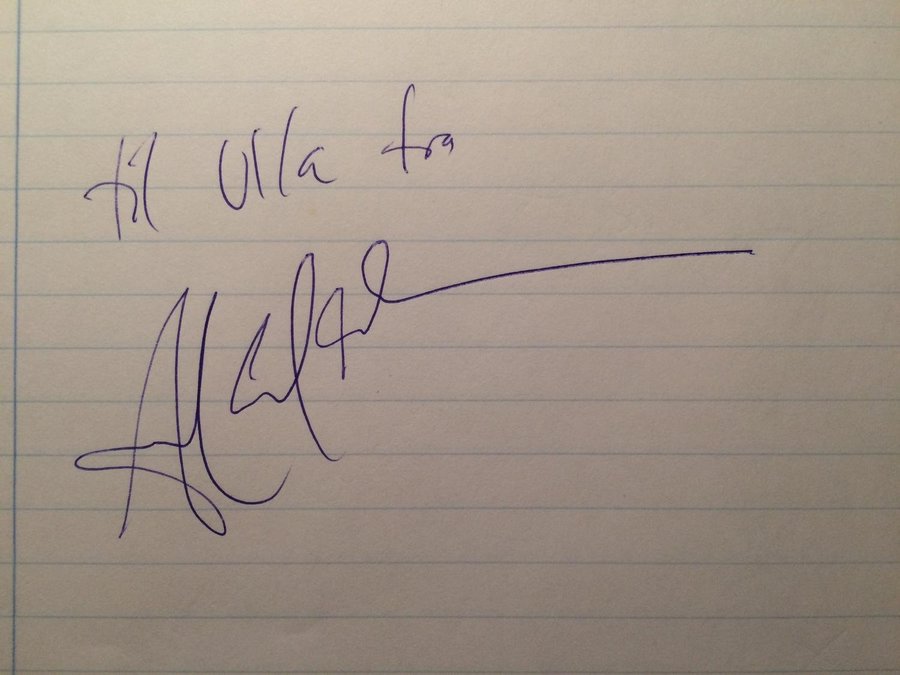 til Ulla fra